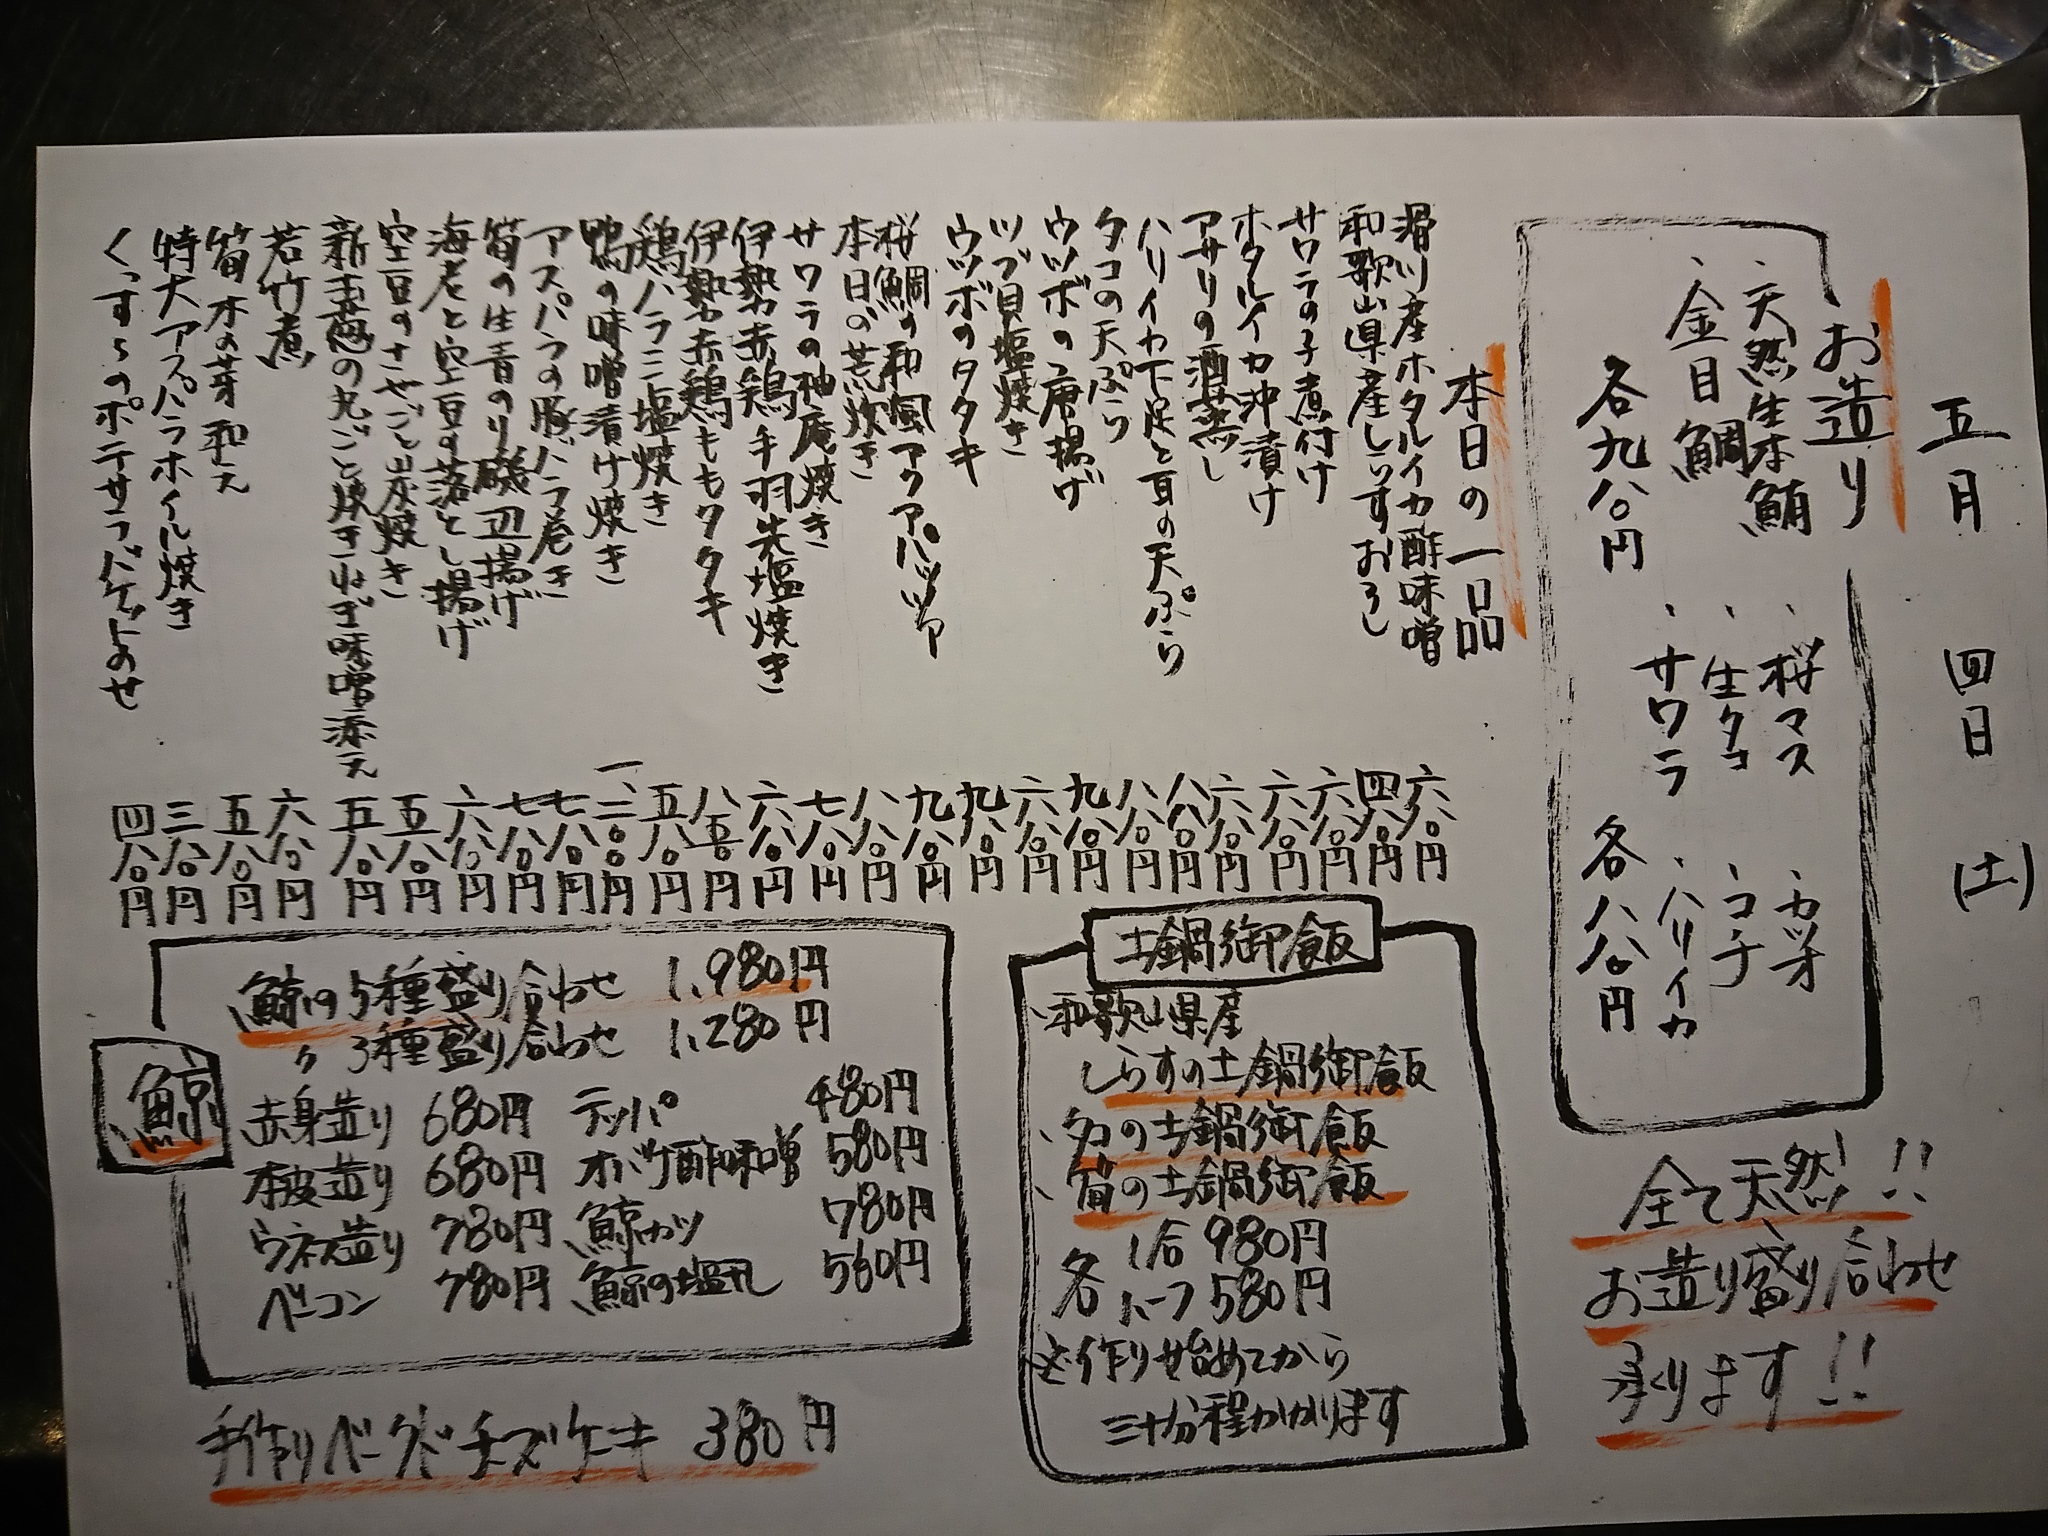 五月 四日 (土)
お造り
・天然生本鮪
・金目鯛
各九八〇円
・桜マス
・生タコ
・サワラ
・カツオ
・コチ
・ハリイカ
各八八〇円
全て天然!!
お造り盛り合わせ
承ります!!
本日の一品
滑川産ホタルイカ酢味噌 六八〇円
和歌山県産しらすおろし 四八〇円
サワラの子煮付け 六八〇円
ホタルイカ沖漬け 六八〇円
アサリの酒蒸し 六八〇円
ハリイカ下足と耳の天ぷら 八八〇円
タコの天ぷら 八八〇円
ウツボの唐揚げ 九八〇円
ツブ貝塩焼き 六八〇円
ウツボのタタキ 九八〇円
桜鯛の和風アクアパッツァ 九八〇円
本日の荒炊き 八八〇円
サワラの柚庵焼き 七八〇円
伊勢赤鶏手羽先塩焼き 六八〇円
伊勢赤鶏ももタタキ 八五〇円
鶏ハラミ塩焼き 五八〇円
鴨の味噌漬け焼き 一、二〇〇円
アスパラの豚バラ巻き 七八〇円
筍の生青のり磯辺揚げ 七八〇円
海老と空豆の落とし揚げ 六八〇円
空豆のさやごと炭焼き 五八〇円
新玉葱の丸ごと焼きねぎ味噌添え 五八〇円
若竹煮 六八〇円
筍木の芽和え 五八〇円
特大アスパラホイル焼き 三八〇円
くっすんのポテサラバゲットのせ 四八〇円
土鍋御飯
・和歌山県産
しらすの土鍋御飯
・タコの土鍋御飯
・筍の土鍋御飯
各 1合 980円
ハーフ 580円
※作り始めてから
三十分程かかります
鯨
鯨の5種盛り合わせ 1,980円
〃 3種盛り合わせ 1,280円
赤身造り 680円 テッパ 480円
本皮造り 680円 オバケ酢味噌 580円
ウネス造り 780円 鯨カツ 780円
ベーコン 780円 鯨の塩丸 560円
手作りベークドチーズケーキ 380円